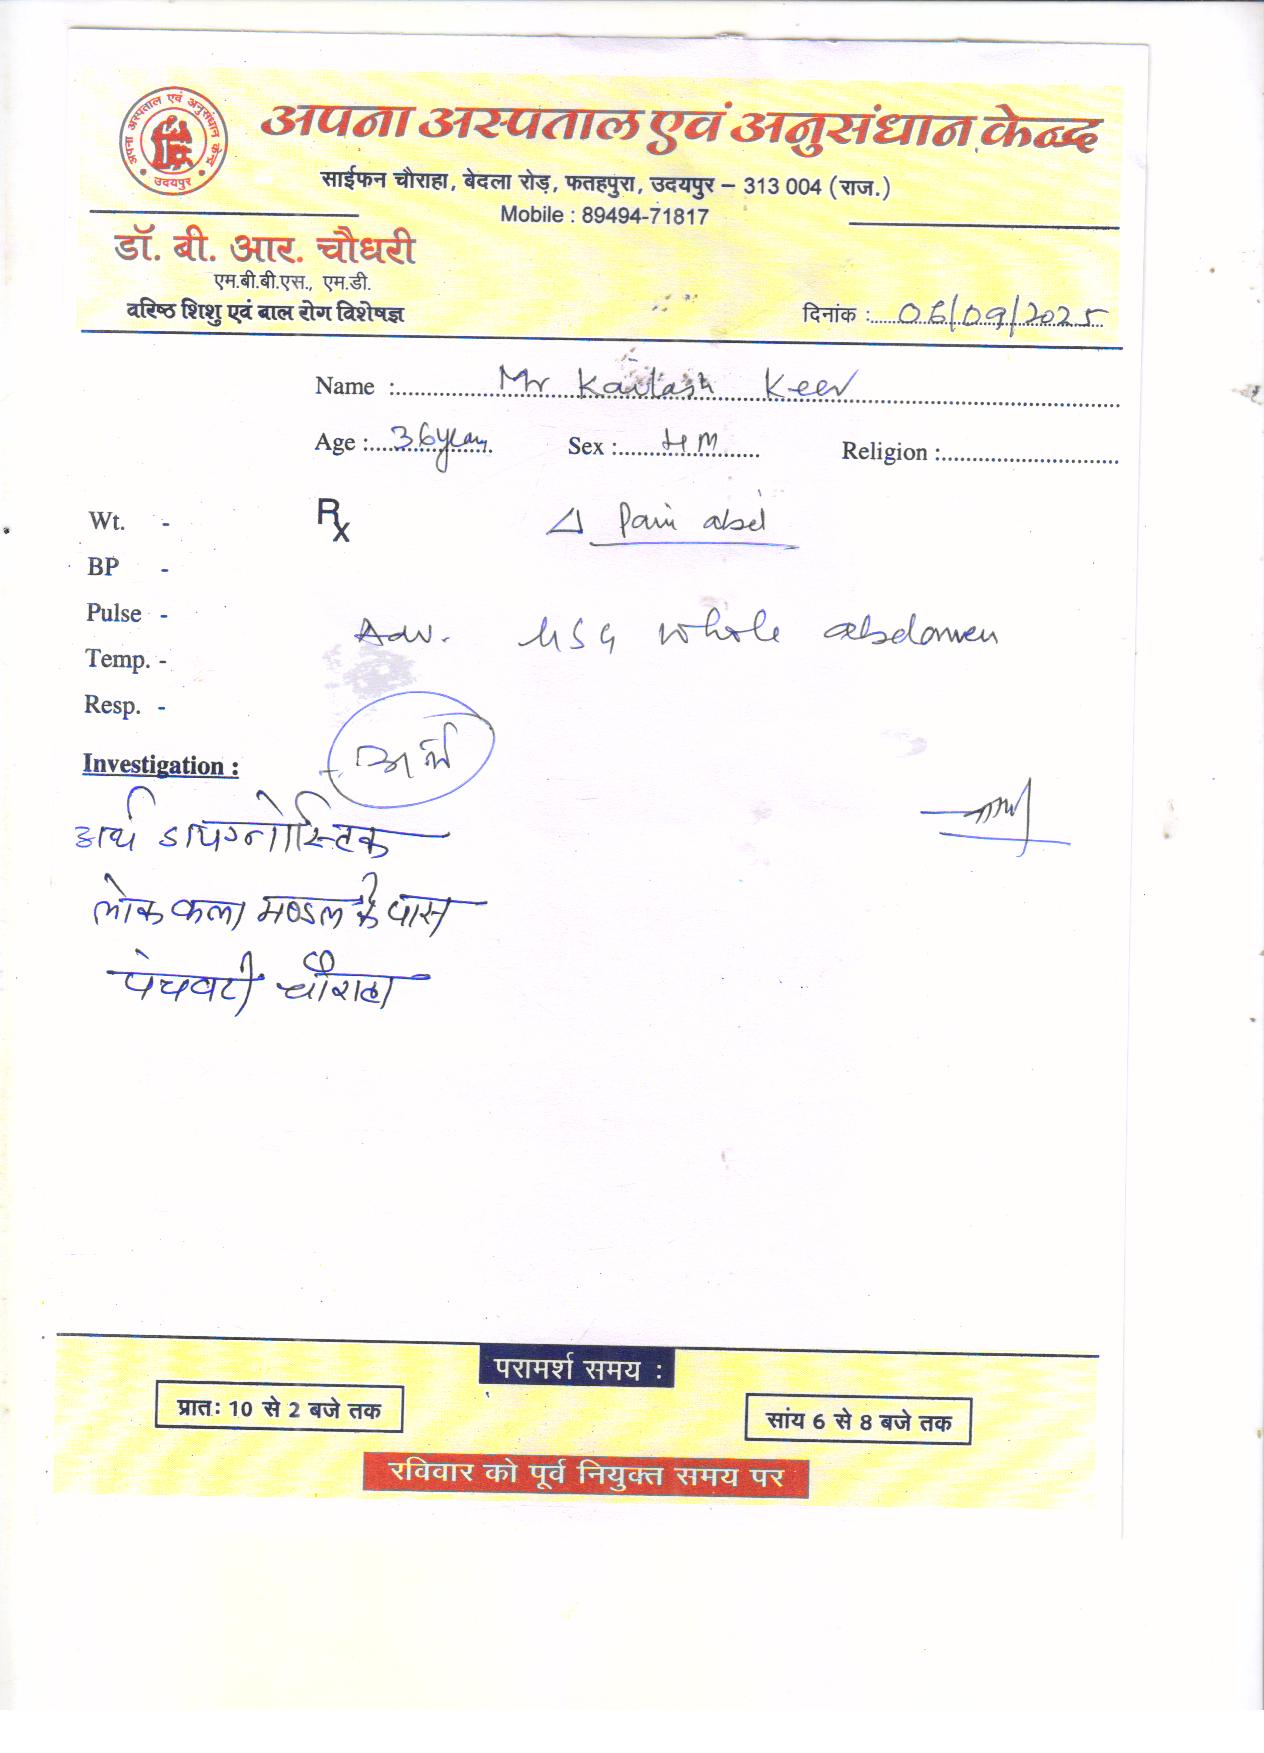 अपना अस्पताल एवं अनुसंधान केन्द्र
उदयपुर
अपना अस्पताल एवं अनुसंधान केन्द्र
साईफन चौराहा, बेदला रोड़, फतहपुरा, उदयपुर – 313 004 (राज.)
Mobile : 89494-71817
डॉ. बी. आर. चौधरी
एम.बी.बी.एस., एम.डी.
वरिष्ठ शिशु एवं बाल रोग विशेषज्ञ
दिनांक : 06/09/2025
Name : Mr Kailash Keer
Age : 36 year Sex : M Religion :
Wt. - Rx Δ Pain abd
BP -
Pulse -
Adv. USG whole abdomen
Temp. -
Resp. -
अर्थ
Investigation :
अर्थ डायग्नोस्टिक
लोक कला मण्डल के पास
पंचवटी चौराहा
परामर्श समय :
प्रातः 10 से 2 बजे तक
सांय 6 से 8 बजे तक
रविवार को पूर्व नियुक्त समय पर